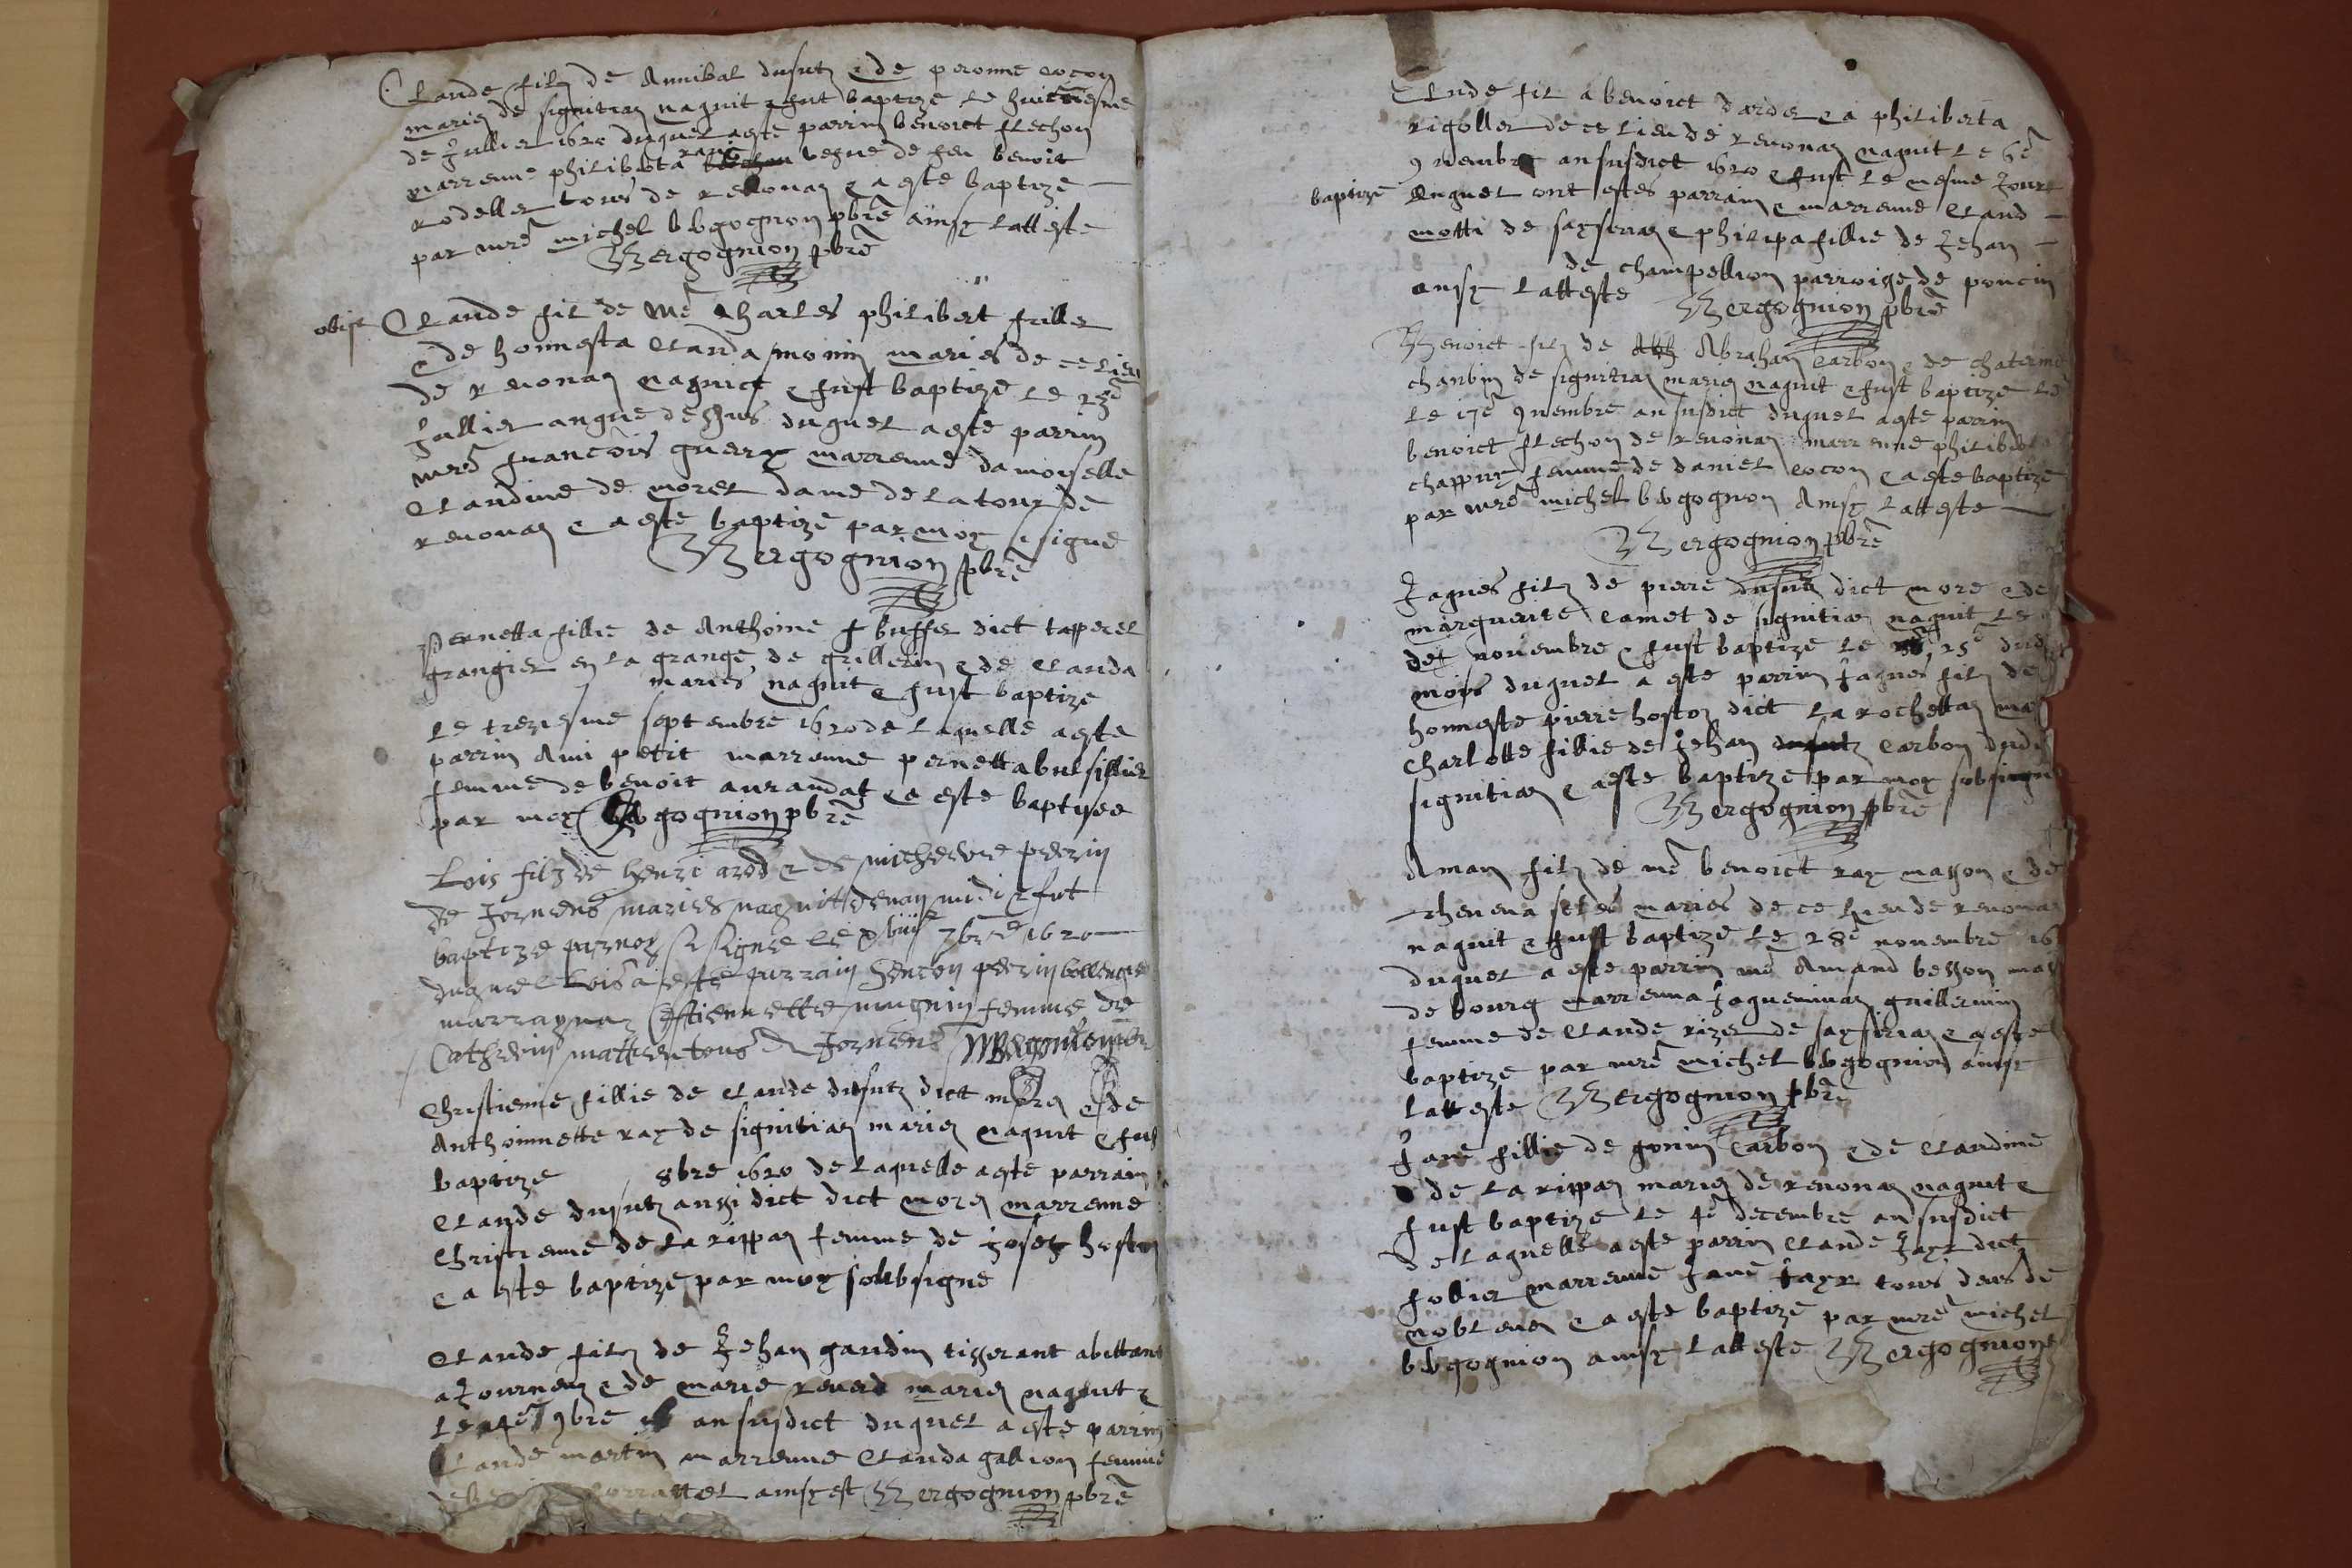 Claude filz de Annibal dusutz & de peronne cocon
mariez de signitiaz naquit & fut baptize le huictiesme
de Jullier 1620 duquel a este parrin benoict flechon
marrenne philiberta vefve de feu benoit
rodellet tous de revonaz & a este baptize
par mre michel bergognon pbre ainsy latteste
Bergognion pbre
obijt Claude fil de Me Charles philibert
& de honnesta Clauda monin mariés de ce lieu
de revonaz naquict & fust baptize le 25e
Jullier an que dessus duquel a este parrin
mre francois guerry marrenne damoyselle
Claudine de morel dame de la tour de
revonaz & a este baptize par moy signé
Bergognion pbre
Pernetta fillie de Anthoine buffet dict tapperel
grangier en la grange de grillerin & de Clauda
mariés naquit & fust baptize
le trezesme septembre 1620 de laquelle a este
parrin Ami petit marrenne pernetta bulsillier
femme de benoit aurandat & a este baptisee
par moy Bergognion pbre
Lois filz de henri & de perrin
de Jornens mariés naquit devan midi & fut
baptize par moy signe le 7bre 1620
duquel Lois a este parrain perrin
marraynaz Estiennette mugnin femme de
Cathrein tous de Jornens
Christienne fillie de Claude dusutz dict morez & de
Anthoinnette ray de signitiaz mariez naquit & fust
baptize 8bre 1620 de laquelle a este parrain
Claude dusutz aussi dict dict morez marrenne
Christienne de la rippaz femme de Josez hostoz
& a este baptize par moy soubsigne
Claude filz de Jehan gaudin tisserant abittant
a Journens & de marie reverd mariez naquit &
le 4e 9bre an susdict duquel a este parrin
Claude martin marrenne Clauda gallion femme
ainsy est Bergognion pbre
Claude fil a benoict dardel & a philiberta
rigollet de ce lieu de revonaz naquit le 6e
9vembre an susdict 1620 & fust le mesme Jour
baptize duquel ont estés parrain & marrenne Claud
motti de saysiriaz & philipa fillie de Jehan
de champellion parroige de poncin
ansy latteste Bergognion pbre
Benoict filz de Abraham Carbon & de chaterine
charbin de signitiaz mariez naquit & fust baptize le
le 17e 9vembre an susdict duquel a este parrin
benoict flechon de revonaz marrenne philiberta
chappuy femme de daniel cocon & a este baptize
par mre michel bergognon Ainsy latteste
Bergognion pbre
Jaques filz de pierre dusutz dict more & de
marguerite camet de signitiaz naquit le
de novembre & fust baptize le 25e dud
mois duquel a este parrin Jaques filz de
honneste pierre hostoz dict la rochettaz
Charlotte fillie de Jehan Carbon dud
signitiaz & a este baptize par moy sobsigne
Bergognion pbre
Aman filz de me benoict ray masson & de
mariés de ce lieu de revonaz
naquit & fust baptize le 28e novembre
duquel a este parrin me Amand besson
de bourg marrenna Jaqueminaz guillermin
femme de Claude rizet de saysiriaz & a este
baptize par mre michel bergognion ainsy
latteste Bergognion pbre
Jane fillie de gonin Carbon & de Claudine
de la rippaz mariez de revonaz naquit &
fust baptize le 4e decembre an susdict
de laquelle a este parrin Claude Jayr dict
follier marrenne Jane Jayr tous deus de
noblenez & a este baptize par mre michel
bergognion ainsy latteste Bergognion